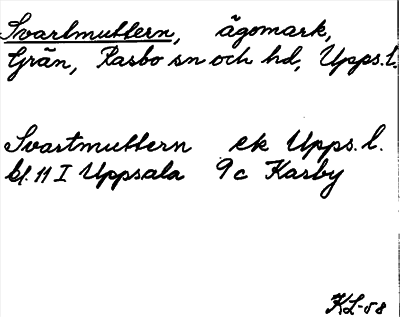 Svartmuttern, ägomark,
Grän, Rasbo sn och hd, Upps.l.
Svartmuttern ek Upps. l.
bl. 11 I Uppsala 9c Karby
KL-58